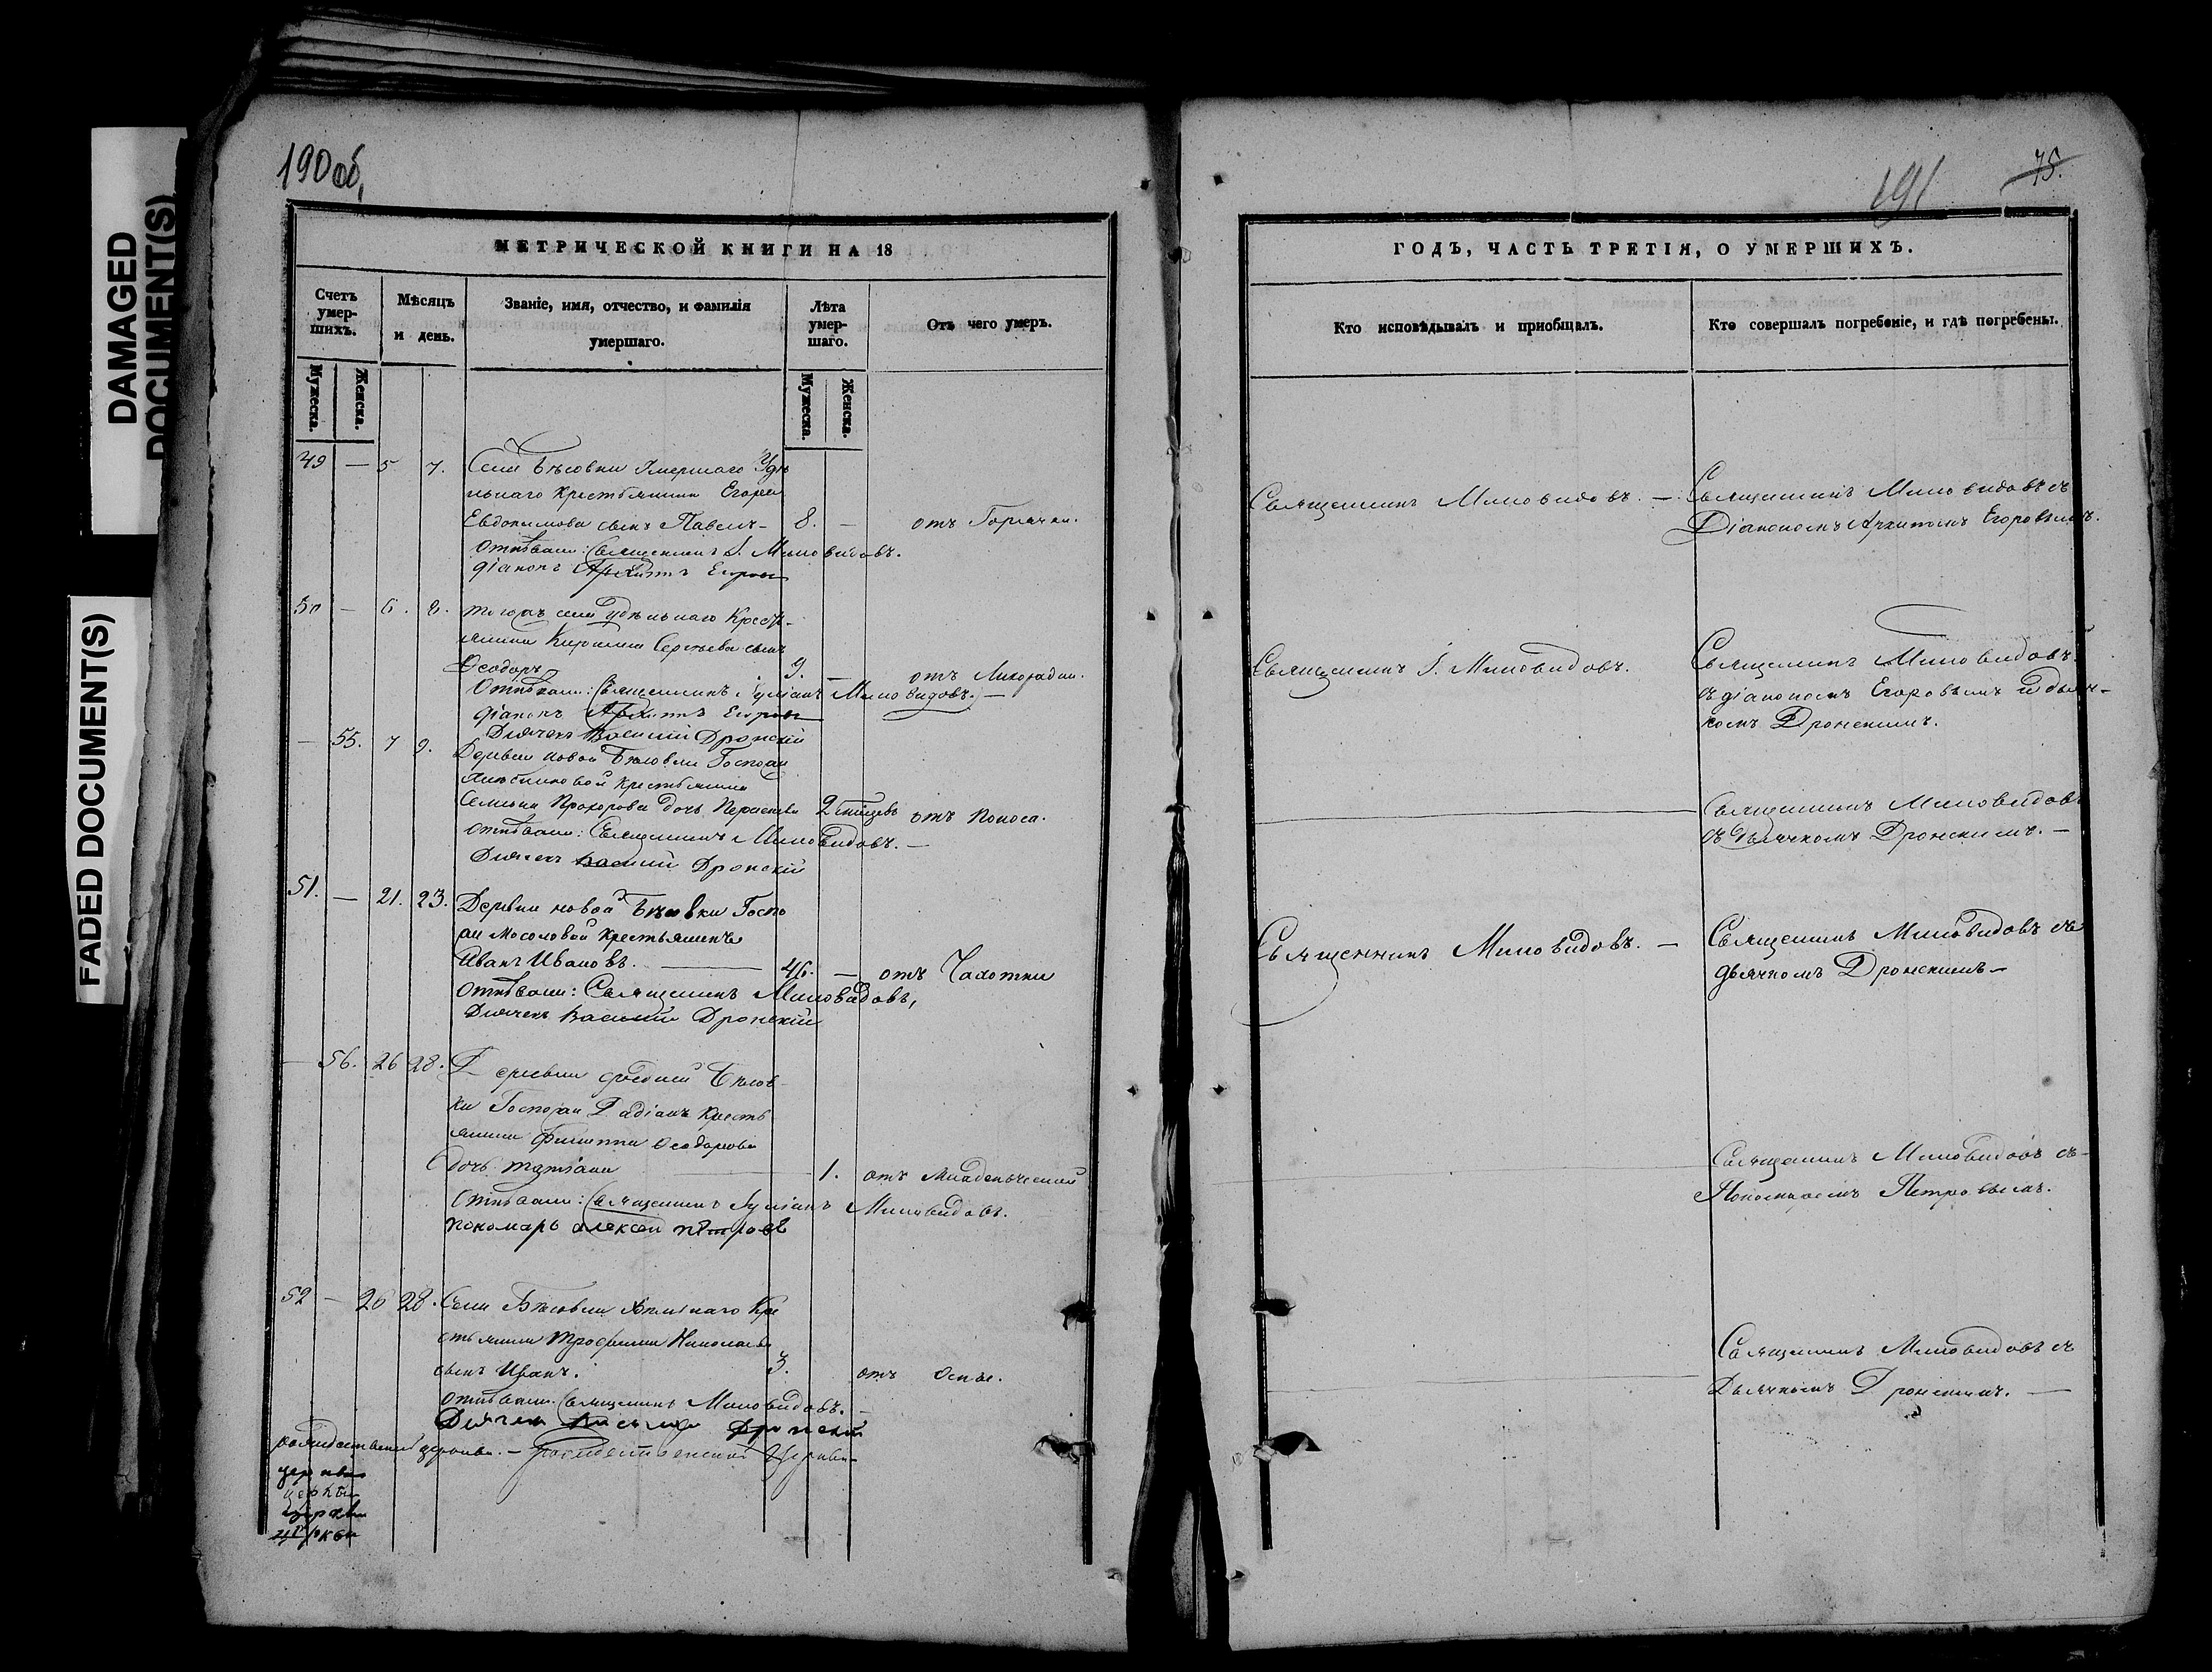 DAMAGED
DOCUMENT(S)
FADED DOCUMENT(S)
190 об,
МЕТРИЧЕСКОЙ КНИГИ НА 18
Счетъ умер-шихъ.
Мѣсяцъ и день.
Званіе, имя, отчество, и фамилія умершаго.
Лѣта умер-шаго.
Отъ чего умеръ.
Мужеска.
Женска.
Мужеска.
Женска.
49 — 5 7. Села Бѣловки Умершаго Удѣ
льнаго крестьянина Егора
Евдокимова сынъ Павелъ — 8. — отъ Горячки.
Отпѣвали: Священникъ І. Миловидовъ.
діаконъ Архипъ Егоровъ
50 — 6. 8. тогожъ села Удѣльнаго Кресть-
янина Кирилла Сергѣева сынъ
Ѳеодоръ 9. — отъ Лихорадки.
Отпѣвали: Священникъ Іуліанъ Миловидовъ. —
діаконъ Архипъ Егоровъ
Дьячекъ Василій Дронскій
— 55. 7 9. Деревни новой Бѣловки Госпожи
крестьянина
Семена Прохорова дочь 2 отъ Поноса.
Отпѣвали: Священникъ Миловидовъ. —
Дьячекъ Василій Дронскій
51. — 21. 23. Деревни новой Бѣловки Госпо
жи Мосоловой крестьянинъ
Иванъ Ивановъ. 46. — отъ Чахотки
Отпѣвали: Священникъ Миловидовъ,
Дьячекъ Василій Дронскій
— 56. 26 28. Деревни средней Бѣлов-
ки Госпожи кресть
янина Филиппа Ѳеодорова
дочь Татіана 1. отъ Младенческой
Отпѣвали: Священникъ Іуліанъ Миловидовъ.
пономарь алексей петровъ
52 — 26 28. Села Бѣловки Кре
стьянина Трофима Николаева
сынъ Иванъ. 3. отъ Оспы.
Отпѣвали: Священникъ Миловидовъ. —
Дьячекъ Василій Дронскій
церкви
церкви
церкви
церкви
191
75.
ГОДЪ, ЧАСТЬ ТРЕТІЯ, О УМЕРШИХЪ.
Кто исповѣдывалъ и приобщалъ.
Кто совершалъ погребеніе, и гдѣ погребены.
Священникъ Миловидовъ. — Священникъ Миловидовъ съ
Діакономъ Архипомъ Егоровымъ.
Священникъ І. Миловидовъ. Священникъ Миловидовъ
съ діакономъ Егоровымъ и дьяч-
комъ Дронскимъ.
Священникъ Миловидовъ
съ Дьячкомъ Дронскимъ. —
Священникъ Миловидовъ. — Священникъ Миловидовъ съ
дьячкомъ Дронскимъ —
Священникъ Миловидовъ съ
Пономаремъ Петровымъ.
Священникъ Миловидовъ съ
Дьячкомъ Дронскимъ. —